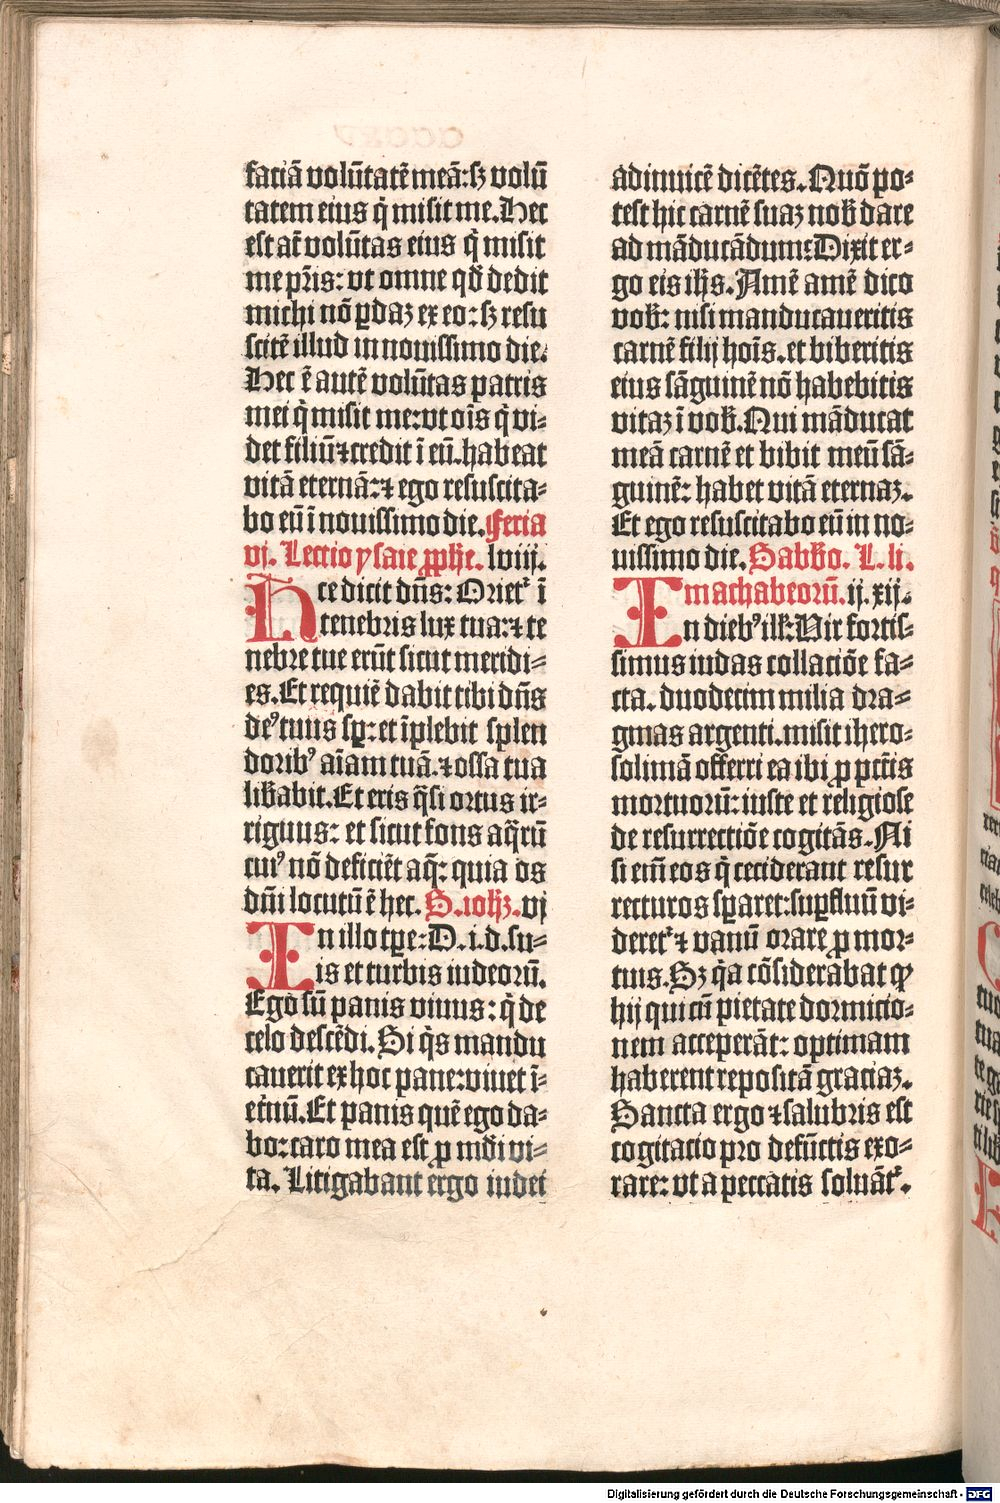 faciā volūtatē meā: sꝫ volū
tatem eius q̇ misit me. Hec
est at̄ volūtas eius q̇ misit
me pr̄is: vt omne qd̄ dedit
michi nō ꝑdaꝫ ex eo: sꝫ resu
scitē illud in nouissimo die.
Hec ē autē volūtas patris
mei q̇ misit me: vt oīs q̇ vi⸗
det filiū ⁊ credit ī eū. habeat
vitā eternā: ⁊ ego resuscita⸗
bo eū ī nouissimo die. Feria
vj. Lectio ysaie ꝓph̄e. lviij.
Hec dicit dn̄s: Orietᷣ ī
tenebris lux tua: ⁊ te
nebre tue erūt sicut meridi⸗
es. Et requiē dabit tibi dn̄s
deꝰ tuus sꝑ: et īplebit splen
doribꝰ aīam tuā. ⁊ ossa tua
lib̄abit. Et eris q̄si ortus ir⸗
riguus: et sicut fons aq̄rū
cuiꝰ nō deficiēt aq̄: quia os
dn̄i locutū ē hec. S. ioh̄ꝫ. vj
In illo tꝑe: D. i. d. su⸗
is et turbis iudeorū.
Ego sū panis viuus: q̇ de
celo descēdi. Si q̇s mandu
cauerit ex hoc pane: viuet ī⸗
et̄nū. Et panis quē ego da⸗
bo: caro mea est ꝓ mūdi vi⸗
ta. Litigabant ergo iudei
adinuicē dicētes. Quō po⸗
test hic carnē suaꝫ nob̄ dare
ad māducādum: Dixit er⸗
go eis ih̄s. Amē amē dico
vob̄: nisi manducaueritis
carnē filij hoīs. et biberitis
eius sāguinē nō habebitis
vitaꝫ ī vob̄. Qui māducat
meā carnē et bibit meū sā⸗
guinē: habet vitā eternaꝫ.
Et ego resuscitabo eū in no⸗
uissimo die. Sabb̄o. L. li.
machabeorū. ij. xij.
In diebꝰ ill̄: Vir fortis⸗
simus iudas collaciōe fa⸗
cta. duodecim milia dra⸗
gmas argenti. misit ihero⸗
solimā offerri ea ibi ꝓ pctīs
mortuorū: iuste et religiose
de resurrectiōe cogitās. Ni
si em̄ eos q̇ ceciderant resur
recturos sꝑaret: suꝑfluū vi⸗
deretᷣ ⁊ vanū orare ꝓ mor⸗
tuis. Sꝫ q̇a cōsiderabat ꝙ
hij qui cū pietate dormicio⸗
nem acceperāt: optimam
haberent repositā graciaꝫ.
Sancta ergo ⁊ salubris est
cogitacio pro defūctis exo⸗
rare: vt a peccatis soluātᷣ.
Digitalisierung gefördert durch die Deutsche Forschungsgemeinschaft - DFG